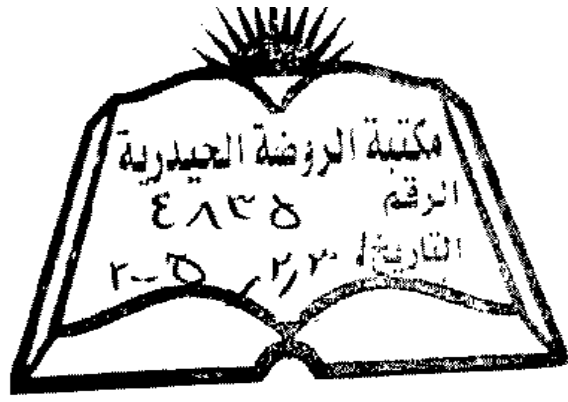 مكتبة الروضة الحيدرية
الرقم ٤٨٣٥
التاريخ